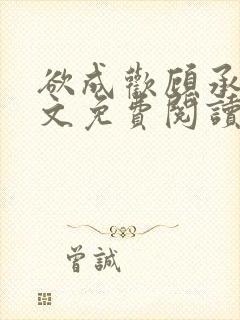 欲成歡顧承
文免費閱讀
曾誠